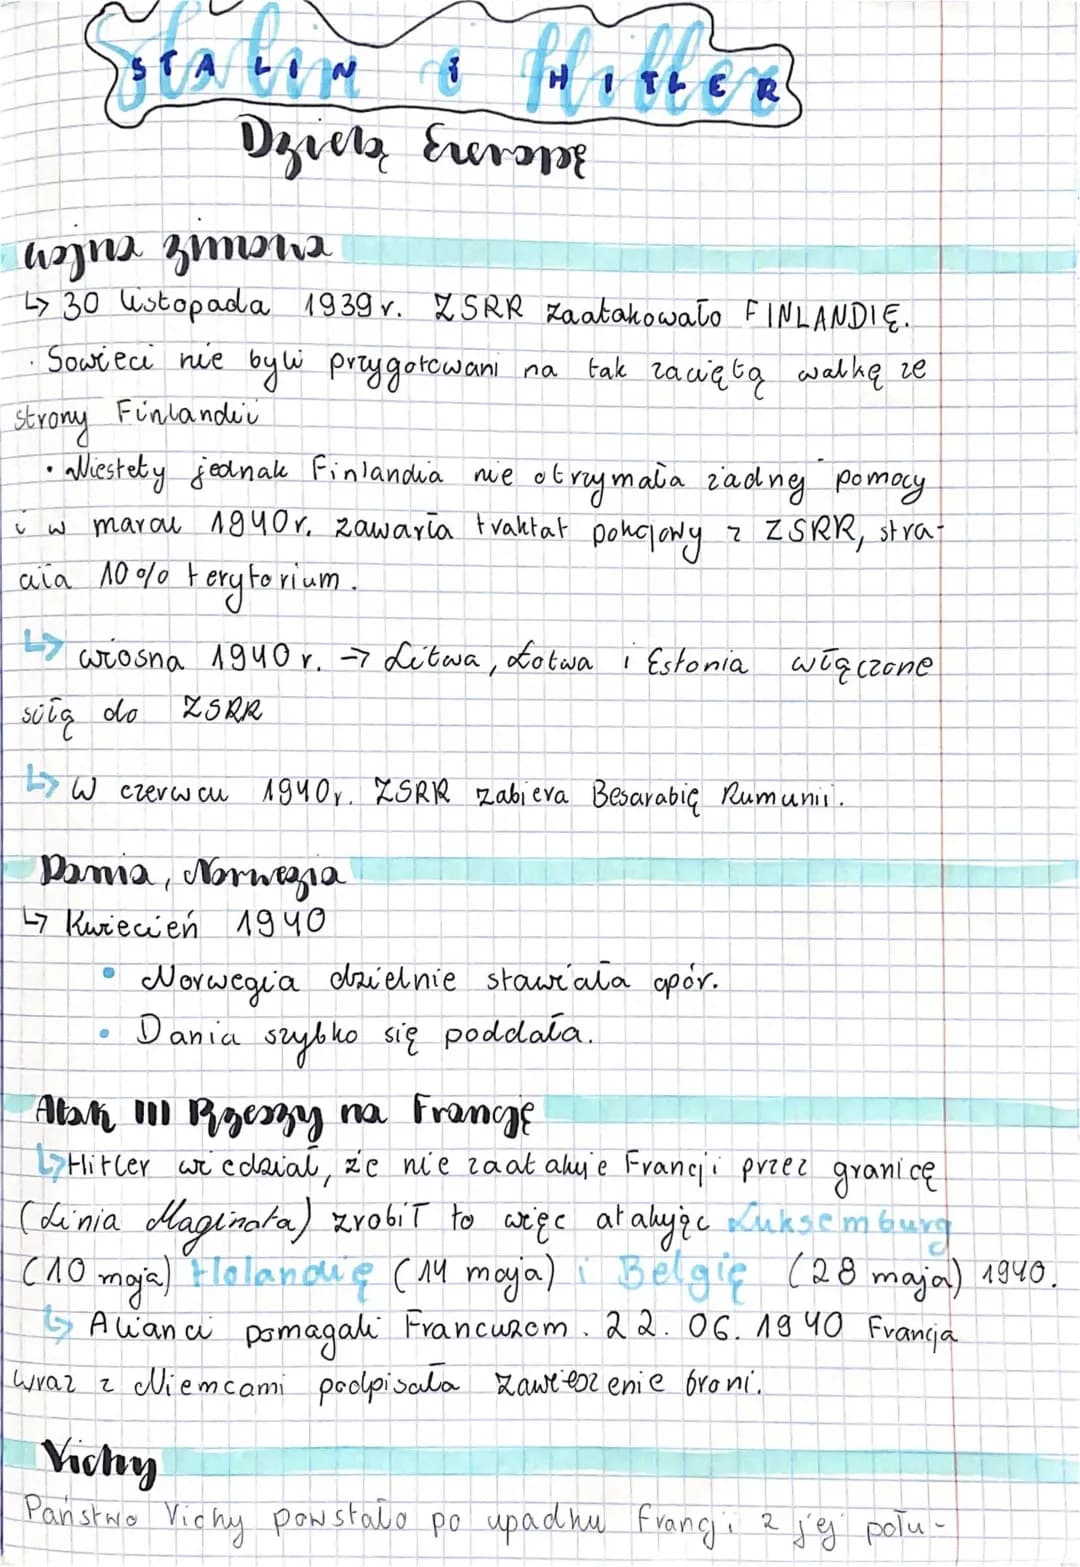 Stalin i Hitler
STALIN I HITLER
Dzielą Europę
wojna zimowa
↳ 30 listopada 1939r. ZSRR zaatakowało FINLANDIĘ.
· Sowieci nie byli przygotowani na tak zaciętą walkę ze
strony Finlandii
• Niestety jednak Finlandia nie otrzymała żadnej pomocy
i w marcu 1940r. zawarła traktat pokojowy z ZSRR, stra-
ciła 10% terytorium.
↳ wiosna 1940 r. → Litwa, Łotwa i Estonia włączone
siłą do ZSRR
↳ W czerwcu 1940r. ZSRR zabiera Besarabię Rumunii.
Dania, Norwegia
↳ Kwiecień 1940
• Norwegia dzielnie stawiała opór.
• Dania szybko się poddała.
Atak III Rzeszy na Francję
↳ Hitler wiedział, że nie zaatakuje Francji przez granicę
(Linia Maginota) zrobił to więc atakując Luksemburg
(10 maja) Holandię (14 maja) i Belgię (28 maja) 1940.
↳ Alianci pomagali Francuzom. 22. 06. 1940 Francja
wraz z Niemcami podpisała zawieszenie broni.
Vichy
Państwo Vichy powstało po upadku Francji z jej połu-